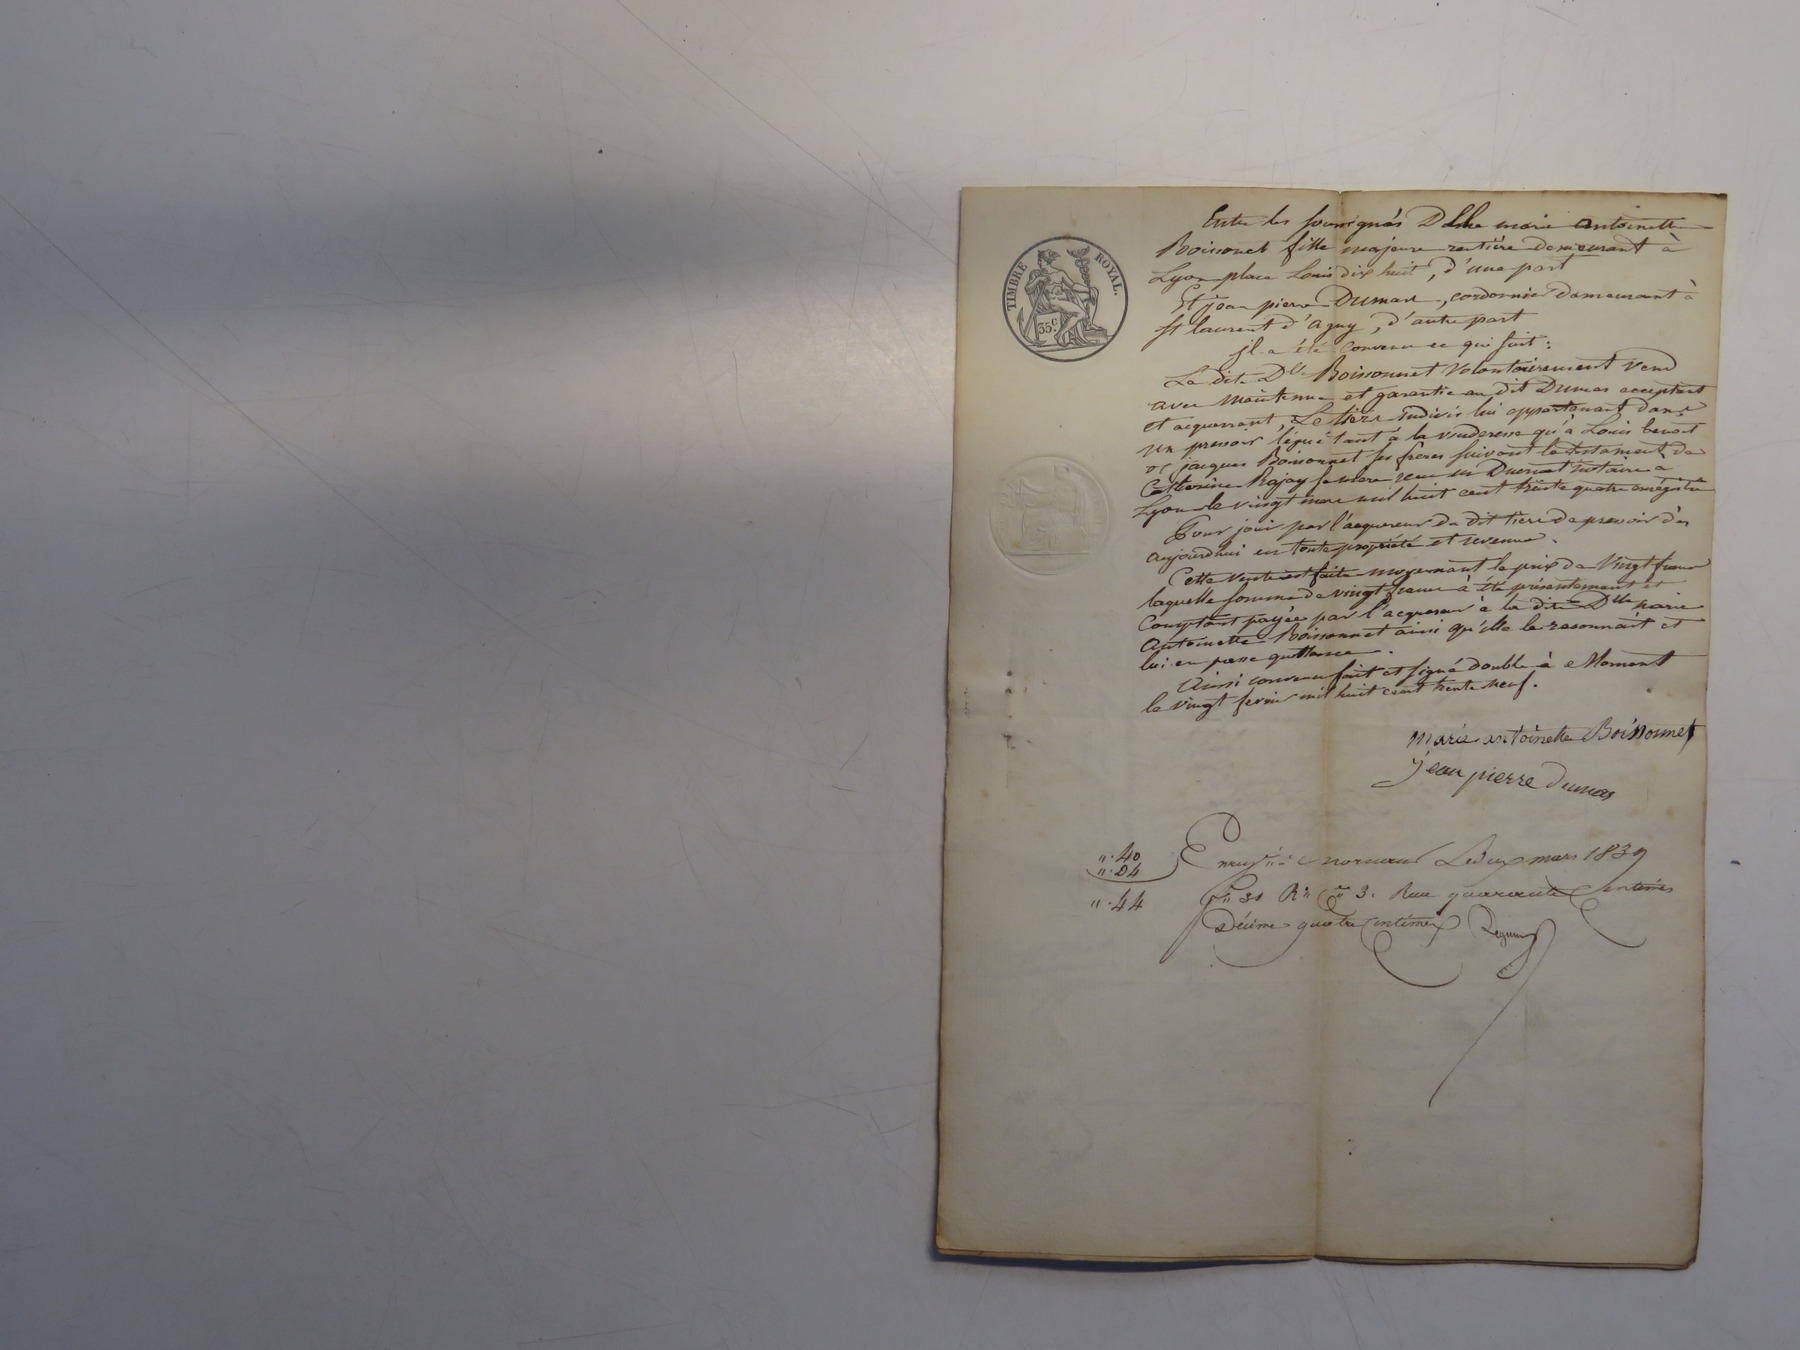 TIMBRE ROYAL.
35 c.
Entre les soussignés Dlle marie antoinette
Boissonet fille majeure rentière demeurant à
Lyon place Louis dix huit, d'une part
Et jean pierre Dumas, cordonnier demeurant à
st laurent d'agny, d'autre part
il a été convenu ce qui suit:
La dite Dlle Boissonnet volontairement vend
avec maintenue et garantie au dit Dumas acceptant
et acquerrant, Le tiers indivis lui appartenant dans
un pressoir légué tant à la venderesse qu'à Louis benoit
et jacques Boissonnet ses frères suivant le testament de
Catherine Rajay sa mere reçu me notaire à
Lyon le vingt mars mil huit cent trente quatre enregistré
Pour jouir par l'acquereur du dit tiers de pressoir dès
aujourdhui en toute propriété et revenus.
Cette vente est faite moyennant le prix de vingt francs
laquelle somme de vingt francs à été présentement et
Comptant payée par l'acquereur à la dite Dlle marie
Antoinette Boissonnet ainsi qu'elle le reconnait et
lui en passe quittance.
Ainsi convenu fait et signé double à Mornant
le vingt fevrier mil huit cent trente neuf.
marie antoinette Boissonnet
jean pierre dumas
" . 40
" . 04
" . 44
Enregté à mornant Le deux mars 1839
fo 31 Ro Co 3. Reçu quarante Centimes
Décime quatre Centimes